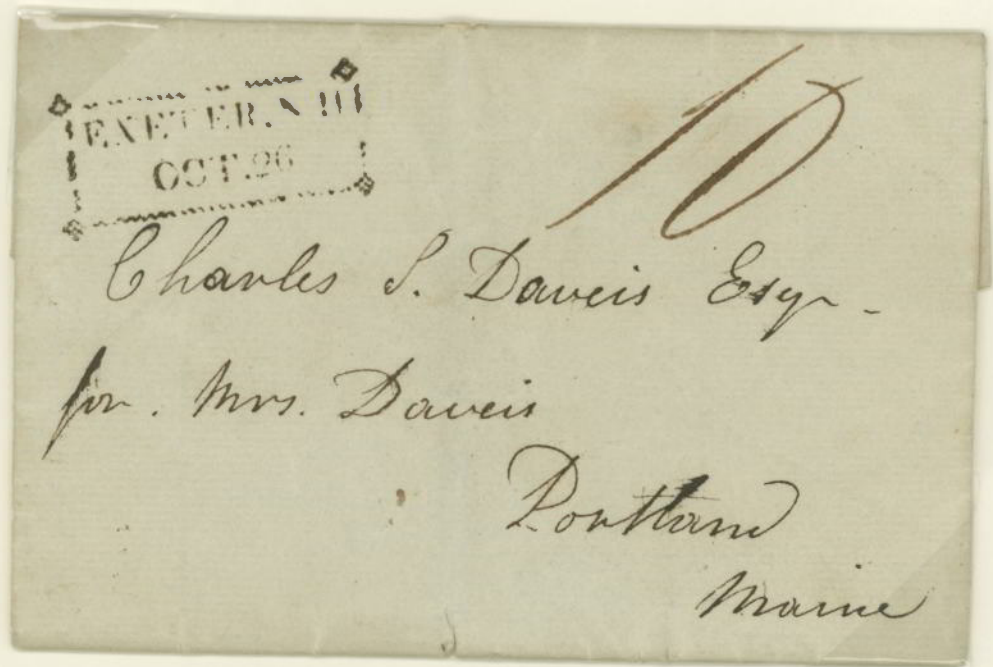 EXETER. N H
OCT. 26
10
Charles S. Daveis Esqr -
for. Mrs. Daveis
Portland
Maine